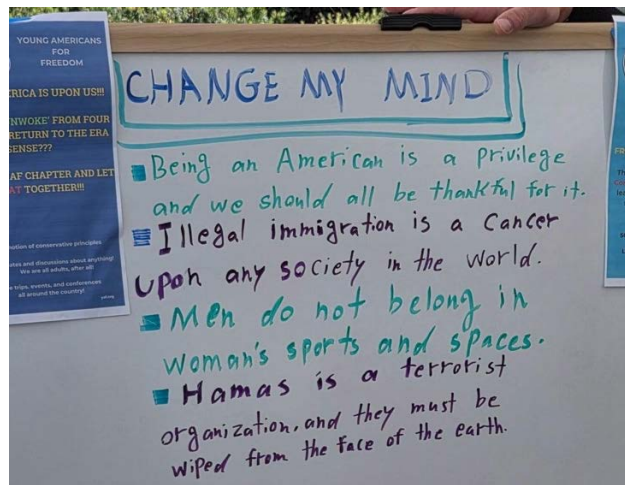 YOUNG AMERICANS
FOR
FREEDOM
RICA IS UPON US!!!
NWOKE' FROM FOUR
RETURN TO THE ERA
SENSE???
AF CHAPTER AND LET
AT TOGETHER!!!
motion of conservative principles
ates and discussions about anything!
We are all adults, after all!
trips, events, and conferences
all around the country!
CHANGE MY MIND
Being an American is a privilege
and we should all be thankful for it.
Illegal immigration is a Cancer
upon any society in the world.
Men do not belong in
woman's sports and spaces.
Hamas is a terrorist
organization, and they must be
wiped from the face of the earth.